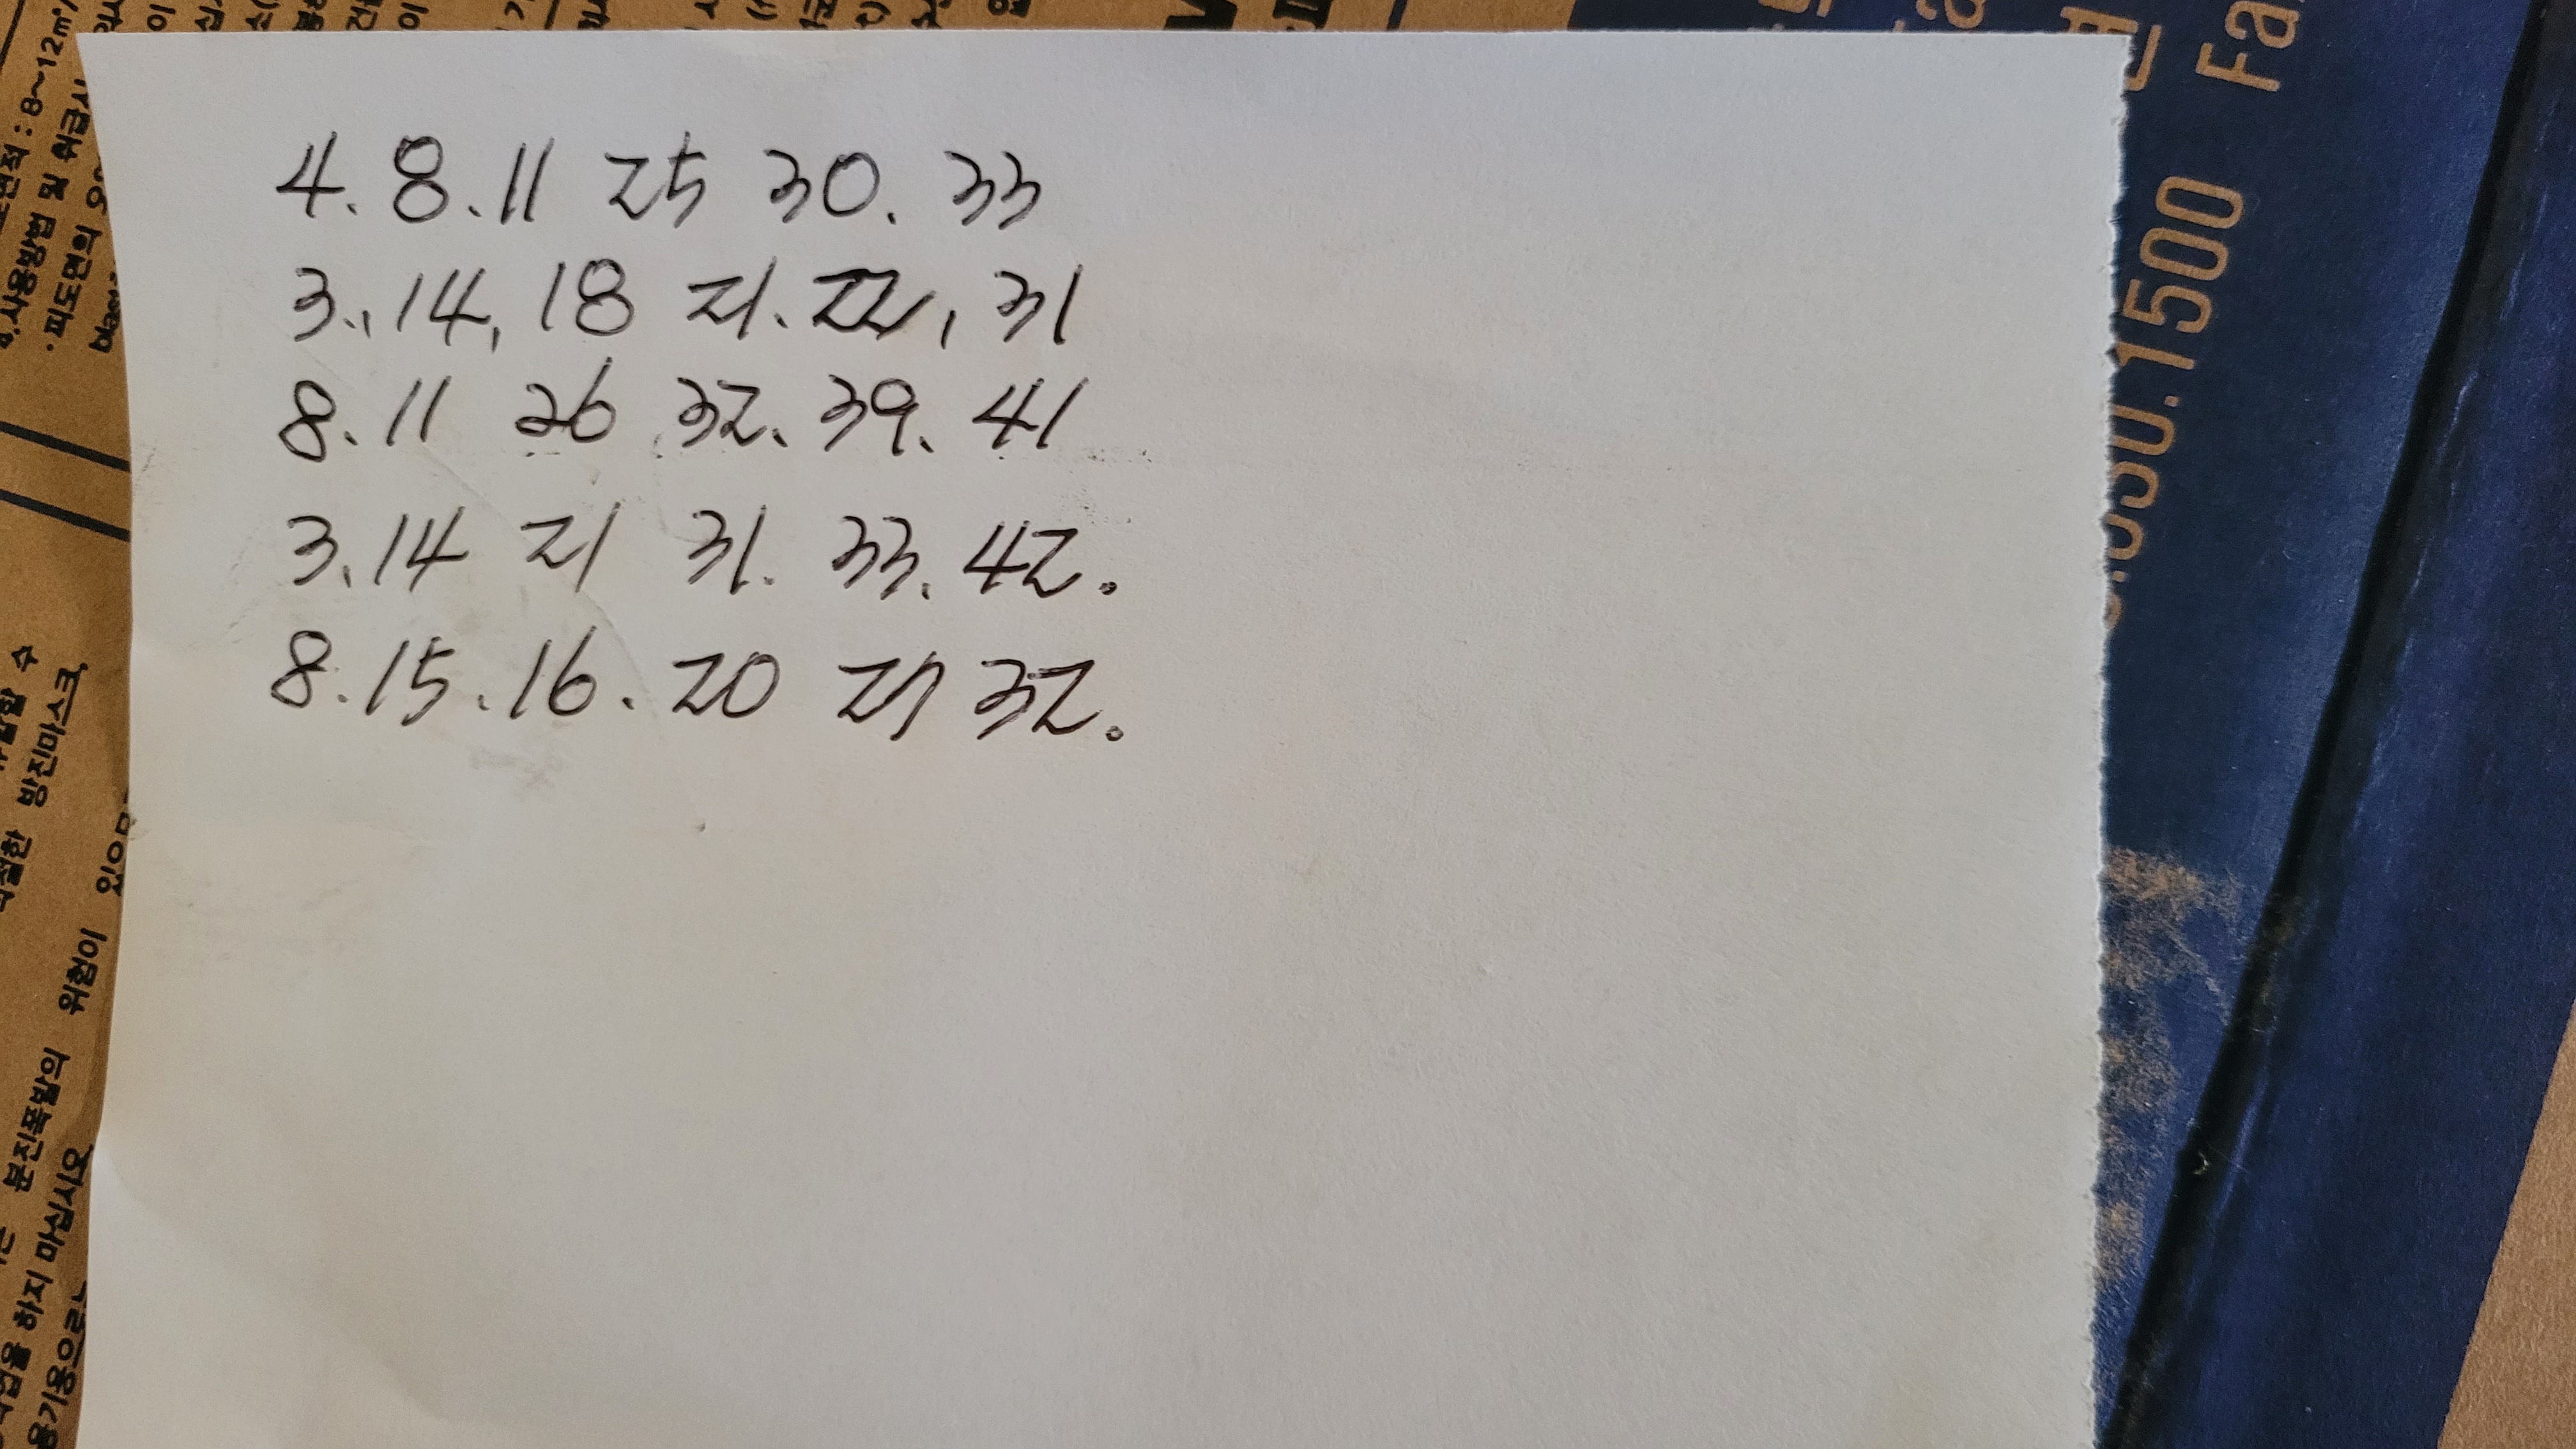 4. 8. 11 25 30. 33
3., 14, 18 21. 22, 31
8. 11 26 32. 39. 41
3. 14 21 31. 33. 42.
8. 15. 16. 20 27 32.
8~12m²/
사용방법 및 취급시
피도면의
030.1500 Fa
방진마스크
위험이
분진폭발의
하지 마십시오